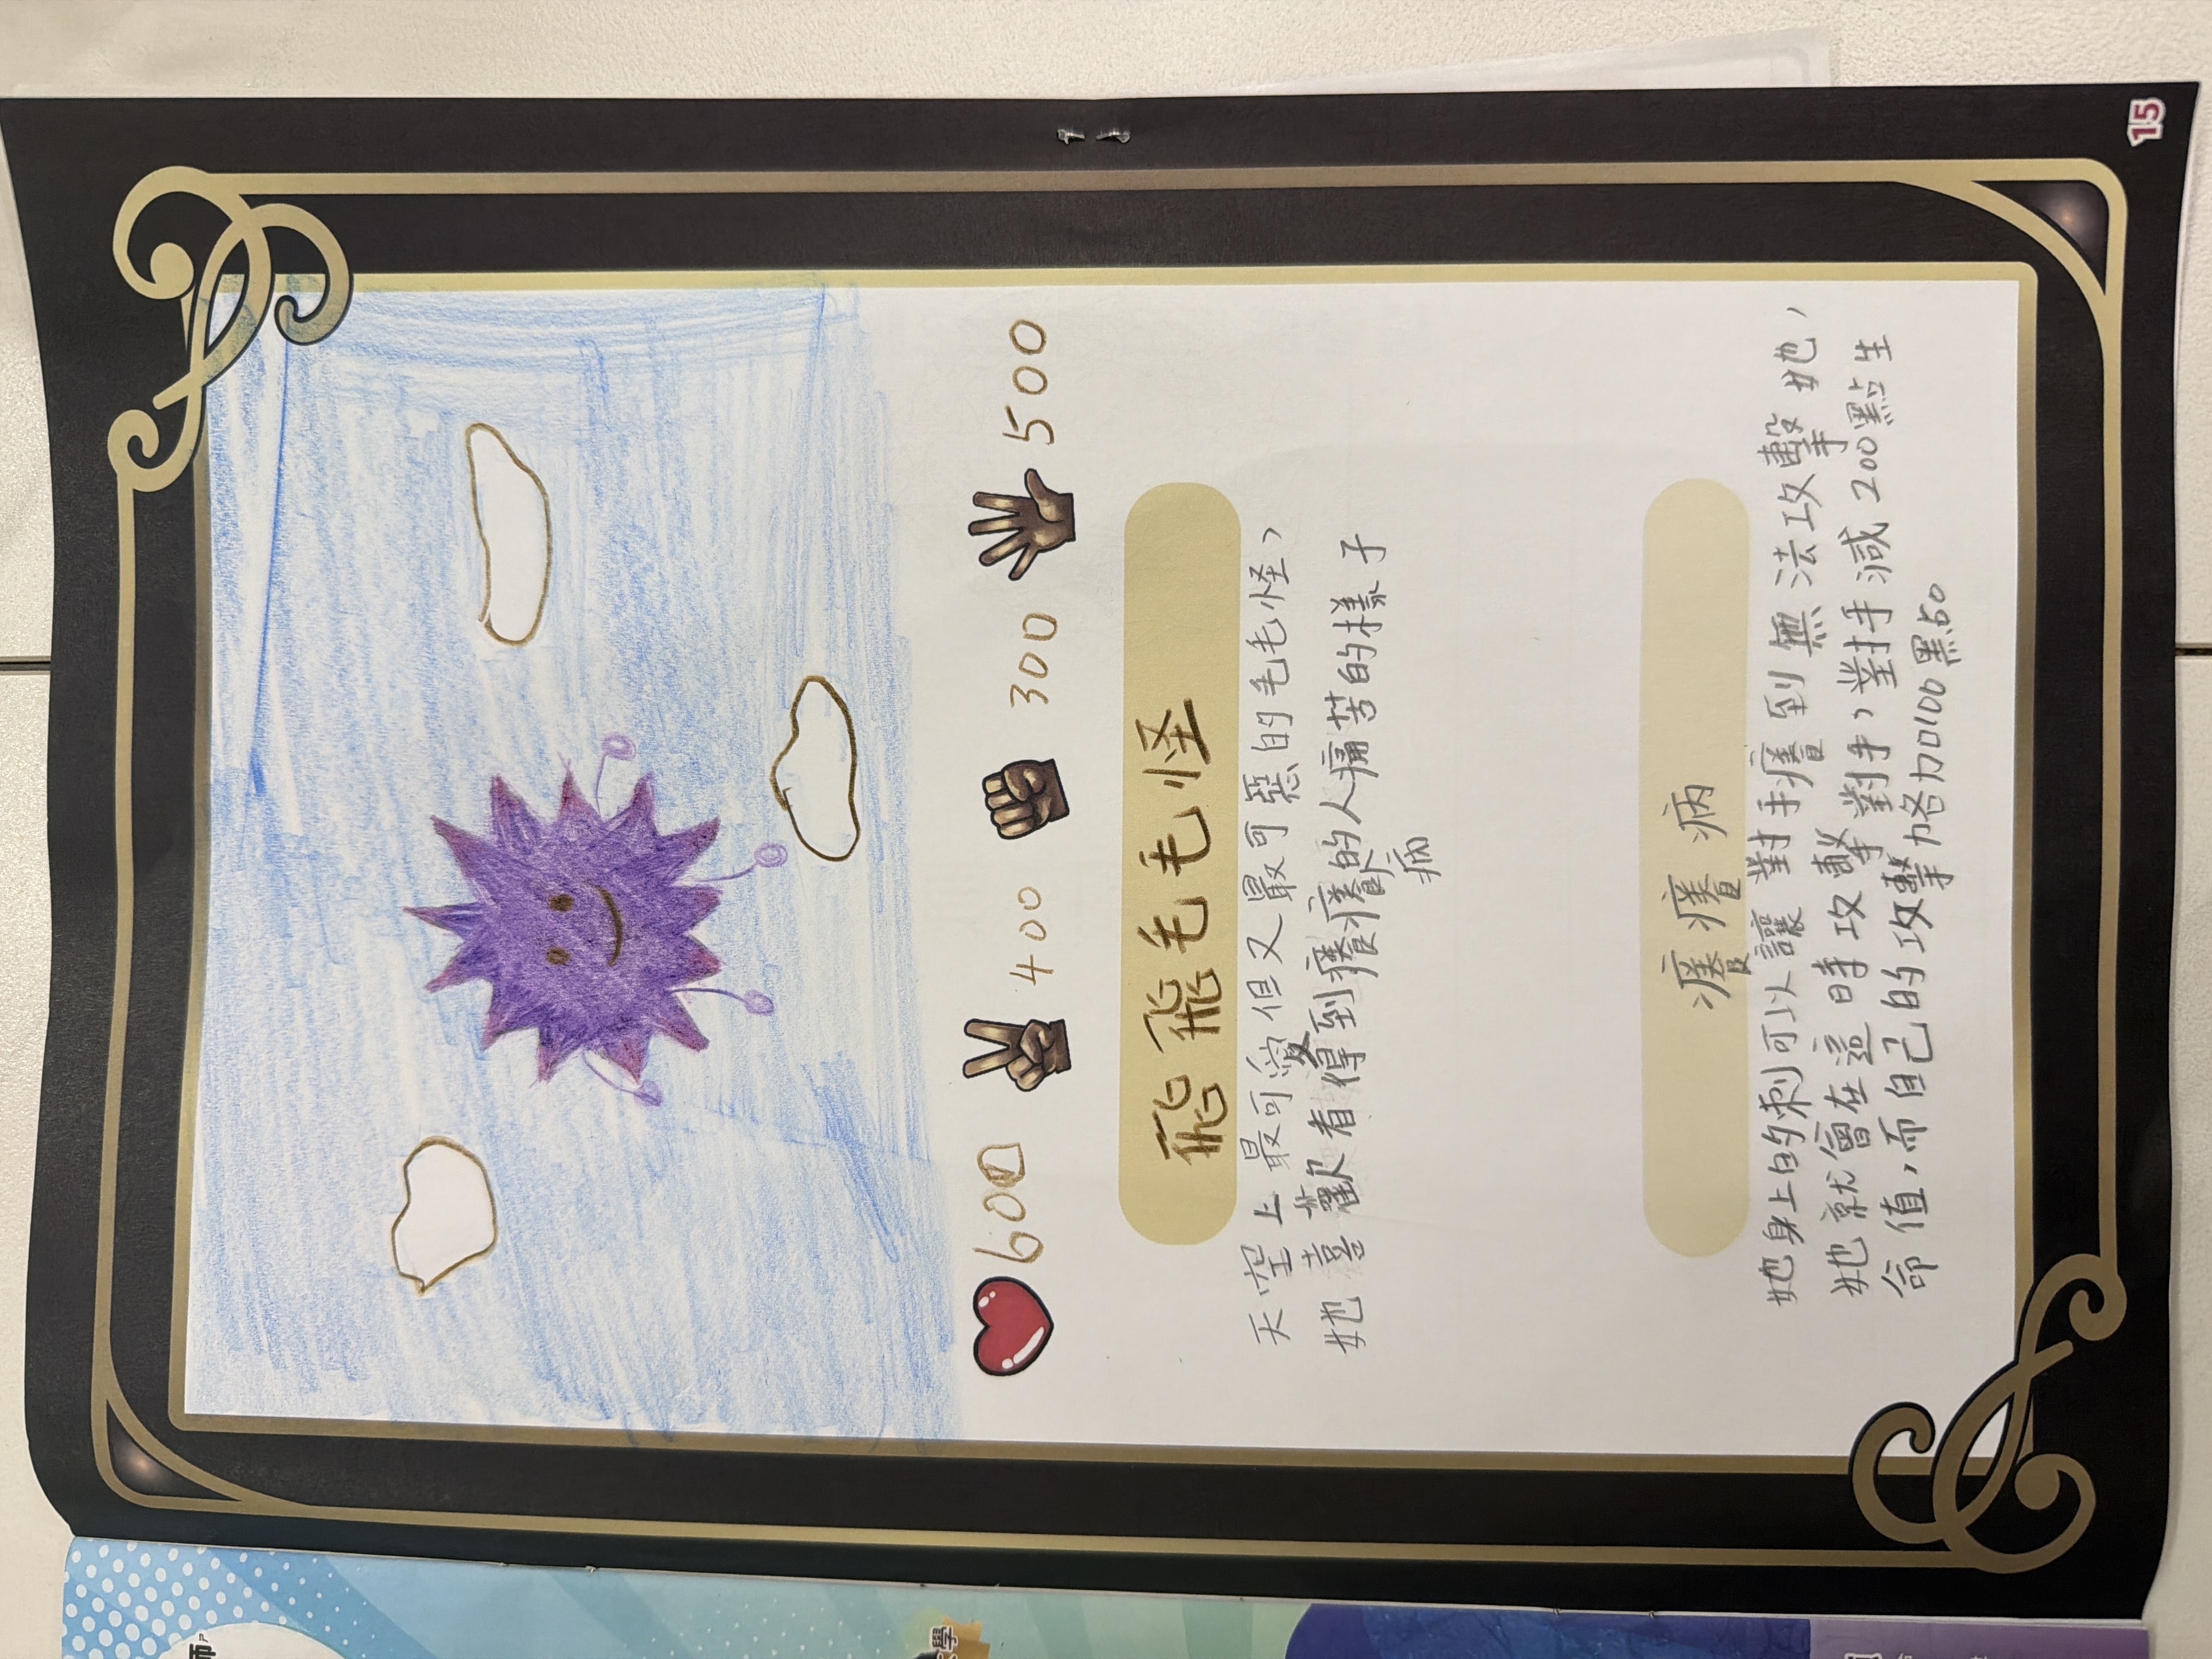 600 400 300 500
飛飛毛毛怪
天空上最可愛但又最可惡的毛毛怪，
她喜歡看得到癢癢的人痛苦的樣子
病
癢癢病
她身上的刺可以讓對手癢到無法攻擊她，
她就會在這時攻擊對手，對手減200點生
命值，而自己的攻擊格加100點。
15